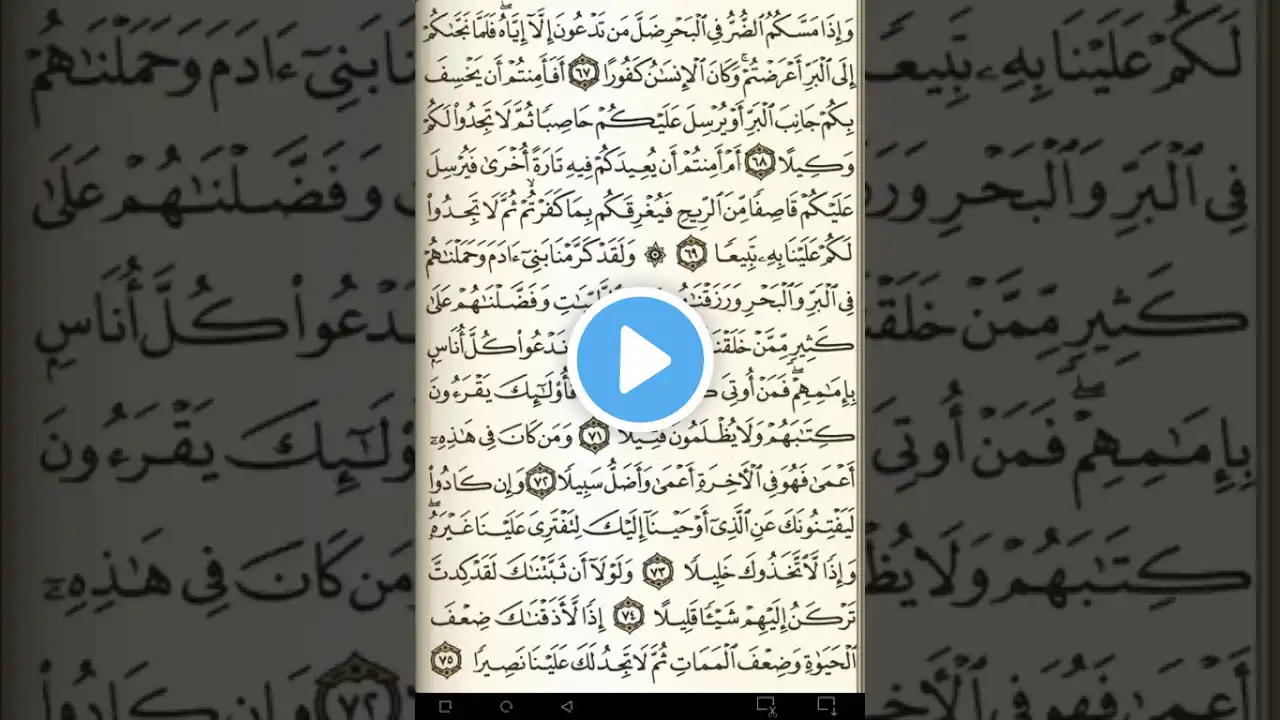 وَإِذَا مَسَّكُمُ ٱلضُّرُّ فِى ٱلْبَحْرِ ضَلَّ مَن تَدْعُونَ إِلَّآ إِيَّاهُ ۖ فَلَمَّا نَجَّىٰكُمْ
إِلَى ٱلْبَرِّ أَعْرَضْتُمْ ۚ وَكَانَ ٱلْإِنسَـٰنُ كَفُورًا ٦٧ أَفَأَمِنتُمْ أَن يَخْسِفَ
بِكُمْ جَانِبَ ٱلْبَرِّ أَوْ يُرْسِلَ عَلَيْكُمْ حَاصِبًا ثُمَّ لَا تَجِدُوا۟ لَكُمْ
وَكِيلًا ٦٨ أَمْ أَمِنتُمْ أَن يُعِيدَكُمْ فِيهِ تَارَةً أُخْرَىٰ فَيُرْسِلَ
عَلَيْكُمْ قَاصِفًا مِّنَ ٱلرِّيحِ فَيُغْرِقَكُم بِمَا كَفَرْتُمْ ۙ ثُمَّ لَا تَجِدُوا۟
لَكُمْ عَلَيْنَا بِهِۦ تَبِيعًا ٦٩ ۞ وَلَقَدْ كَرَّمْنَا بَنِىٓ ءَادَمَ وَحَمَلْنَـٰهُمْ
فِى ٱلْبَرِّ وَٱلْبَحْرِ وَرَزَقْنَـٰهُم ٱلطَّيِّبَـٰتِ وَفَضَّلْنَـٰهُمْ عَلَىٰ
كَثِيرٍ مِّمَّنْ خَلَقْنَا نَدْعُوا۟ كُلَّ أُنَاسٍۭ
بِإِمَـٰمِهِمْ ۖ فَمَنْ أُوتِىَ فَأُو۟لَـٰٓئِكَ يَقْرَءُونَ
كِتَـٰبَهُمْ وَلَا يُظْلَمُونَ فَتِيلًا ٧١ وَمَن كَانَ فِى هَـٰذِهِۦٓ
أَعْمَىٰ فَهُوَ فِى ٱلْـَٔاخِرَةِ أَعْمَىٰ وَأَضَلُّ سَبِيلًا ٧٢ وَإِن كَادُوا۟
لَيَفْتِنُونَكَ عَنِ ٱلَّذِىٓ أَوْحَيْنَآ إِلَيْكَ لِتَفْتَرِىَ عَلَيْنَا غَيْرَهُۥ ۖ
وَإِذًا لَّٱتَّخَذُوكَ خَلِيلًا ٧٣ وَلَوْلَآ أَن ثَبَّتْنَـٰكَ لَقَدْ كِدتَّ
تَرْكَنُ إِلَيْهِمْ شَيْـًٔا قَلِيلًا ٧٤ إِذًا لَّأَذَقْنَـٰكَ ضِعْفَ
ٱلْحَيَوٰةِ وَضِعْفَ ٱلْمَمَاتِ ثُمَّ لَا تَجِدُ لَكَ عَلَيْنَا نَصِيرًا ٧٥